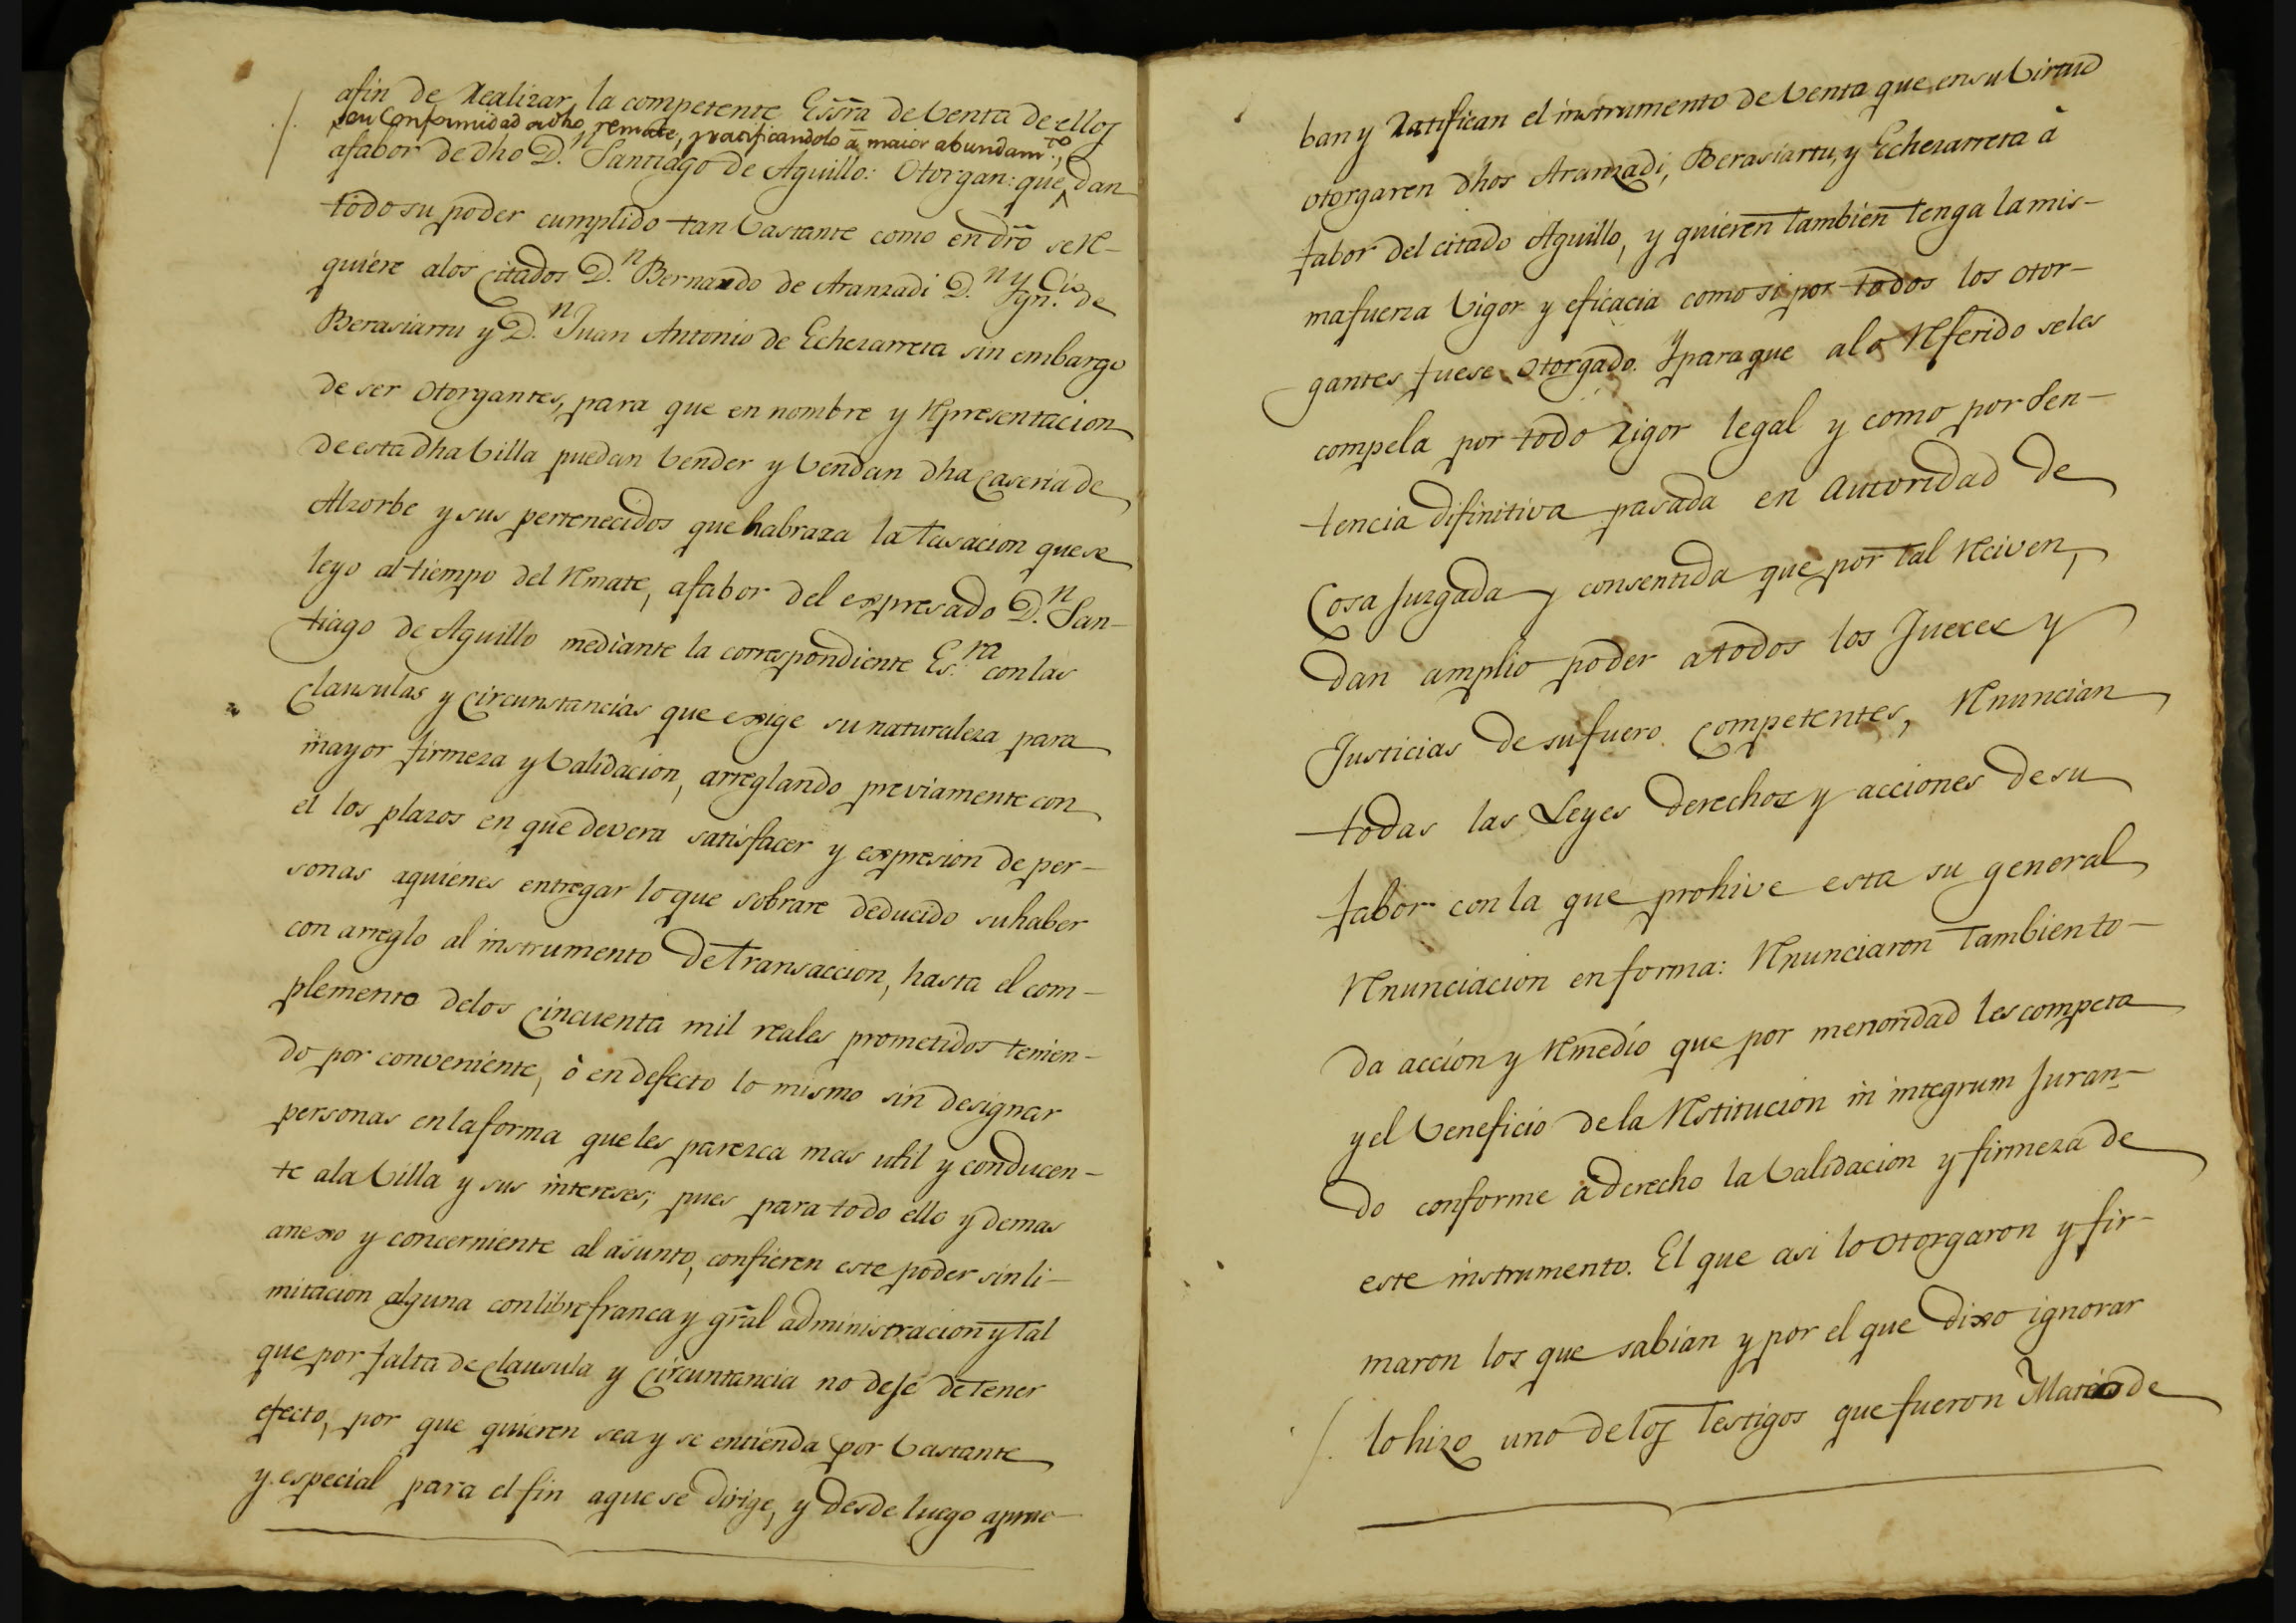 afin de Realizar la competente Essra de Venta de ellos
en Conformidad adho remate, ratificandolo á maior abundam.to,
afabor de dho D.n Santiago de Aguillo: Otorgan: que dan
todo su poder cumplido tan Vastante como en dro se Re-
quiere alos Citados D.n Bernardo de Aranzadi D.n Ygn.cio de
Berasiartu y D.n Juan Antonio de Echezarreta sin embargo
de ser Otorgantes, para que en nombre y Representacion
de esta dha Villa puedan Vender y Vendan dha Caseria de
Alzorbe y sus pertenecidos que habraza la Tasacion que se
leyo al tiempo del Remate, afabor del expresado D.n San-
tiago de Aguillo mediante la correspondiente Es.ra con las
Clausulas y Circunstancias que exige su naturaleza para
mayor firmeza y Validacion, arreglando previamente con
el los plazos en que devera satisfacer y expresion de per-
sonas aquienes entregar lo que sobrare deducido su haber
con arreglo al instrumento de Transaccion, hasta el com-
plemento delos Cincuenta mil reales prometidos tenien-
do por conveniente, ò en defecto lo mismo sin designar
personas en la forma que les parezca mas util y conducen-
te ala Villa y sus intereses; pues para todo ello y demas
anexo y concerniente al asunto, confieren este poder sin li-
mitacion alguna con libre franca y gral administracion y Tal
que por falta de Clausula y Circuntancia no deje de Tener
efecto, por que quieren sea y se entienda por Vastante
y especial para el fin aque se dirige, y desde luego aprue-
ban y Ratifican el instrumento de Venta que en su Virtud
otorgaren dhos Aranzadi, Berasiartu, y Echezarreta à
fabor del citado Aguillo, y quieren Tambien Tenga la mis-
ma fuerza Vigor y eficacia como si por todos los otor-
gantes fuese otorgado. Y para que alo Referido seles
compela por todo Rigor legal y como por Sen-
tencia difinitiva pasada en Autoridad de
Cosa Juzgada y consentida que por Tal Reciven,
dan amplio poder a todos los Jueces y
Justicias de su fuero Competentes, Renuncian
todas las Leyes derechos y acciones de su
fabor con la que prohive esta su general
Renunciacion en forma: Renunciaron Tambien to-
da accion y Remedio que por menoridad les competa
y el Veneficio de la Restitucion in integrum Juran-
do conforme a derecho la Validacion y firmeza de
este instrumento. El que asi lo Otorgaron y fir-
maron los que sabian y por el que dixo ignorar
lo hizo uno de los Testigos que fueron de